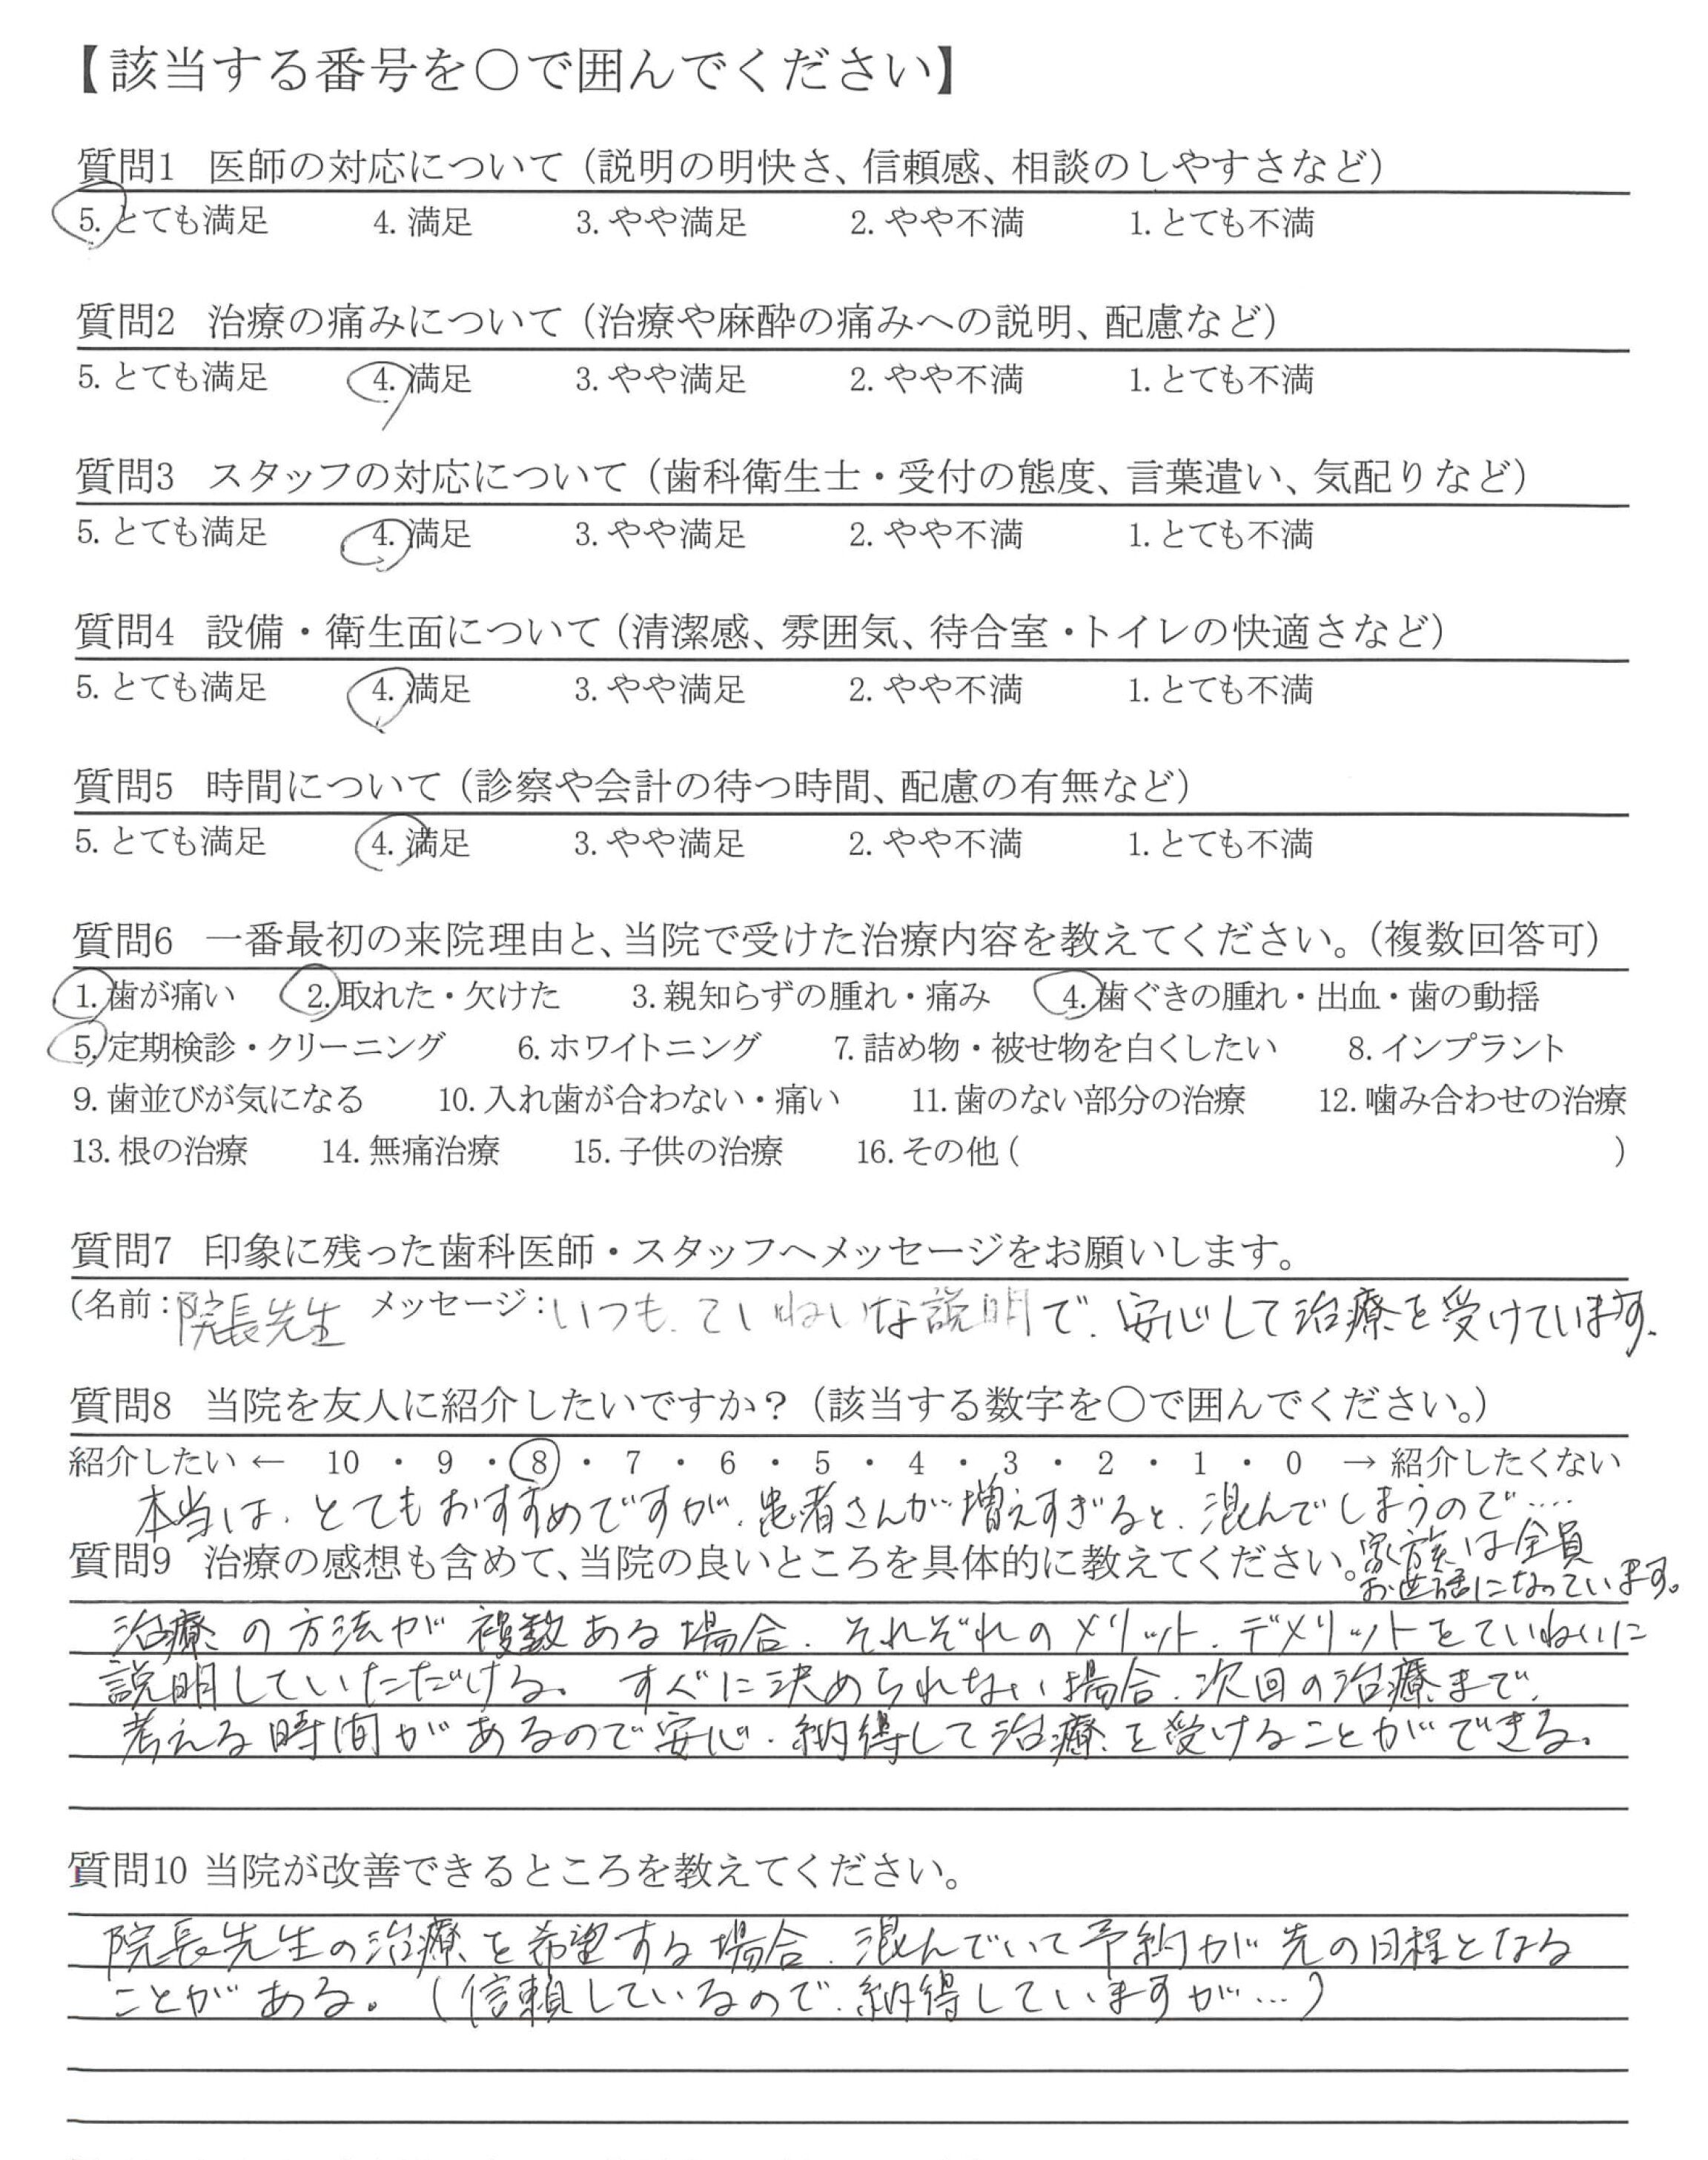 【該当する番号を〇で囲んでください】
質問1 医師の対応について（説明の明快さ、信頼感、相談のしやすさなど）
5. とても満足 4. 満足 3. やや満足 2. やや不満 1. とても不満
質問2 治療の痛みについて（治療や麻酔の痛みへの説明、配慮など）
5. とても満足 4. 満足 3. やや満足 2. やや不満 1. とても不満
質問3 スタッフの対応について（歯科衛生士・受付の態度、言葉遣い、気配りなど）
5. とても満足 4. 満足 3. やや満足 2. やや不満 1. とても不満
質問4 設備・衛生面について（清潔感、雰囲気、待合室・トイレの快適さなど）
5. とても満足 4. 満足 3. やや満足 2. やや不満 1. とても不満
質問5 時間について（診察や会計の待つ時間、配慮の有無など）
5. とても満足 4. 満足 3. やや満足 2. やや不満 1. とても不満
質問6 一番最初の来院理由と、当院で受けた治療内容を教えてください。（複数回答可）
1. 歯が痛い 2. 取れた・欠けた 3. 親知らずの腫れ・痛み 4. 歯ぐきの腫れ・出血・歯の動揺
5. 定期検診・クリーニング 6. ホワイトニング 7. 詰め物・被せ物を白くしたい 8. インプラント
9. 歯並びが気になる 10. 入れ歯が合わない・痛い 11. 歯のない部分の治療 12. 噛み合わせの治療
13. 根の治療 14. 無痛治療 15. 子供の治療 16. その他 ( )
質問7 印象に残った歯科医師・スタッフへメッセージをお願いします。
(名前：院長先生 メッセージ：いつも、ていねいな説明で、安心して治療を受けています。
質問8 当院を友人に紹介したいですか？（該当する数字を〇で囲んでください。）
紹介したい ← 10 ・ 9 ・ 8 ・ 7 ・ 6 ・ 5 ・ 4 ・ 3 ・ 2 ・ 1 ・ 0 → 紹介したくない
本当は、とてもおすすめですが、患者さんが増えすぎると、混んでしまうので‥‥
家族は全員
お世話になっています。
質問9 治療の感想も含めて、当院の良いところを具体的に教えてください。
治療の方法が複数ある場合、それぞれのメリット、デメリットをていねいに
説明していただける。すぐに決められない場合、次回の治療まで、
考える時間があるので安心、納得して治療を受けることができる。
質問10 当院が改善できるところを教えてください。
院長先生の治療を希望する場合、混んでいて予約が先の日程となる
ことがある。（信頼しているので、納得していますが…）